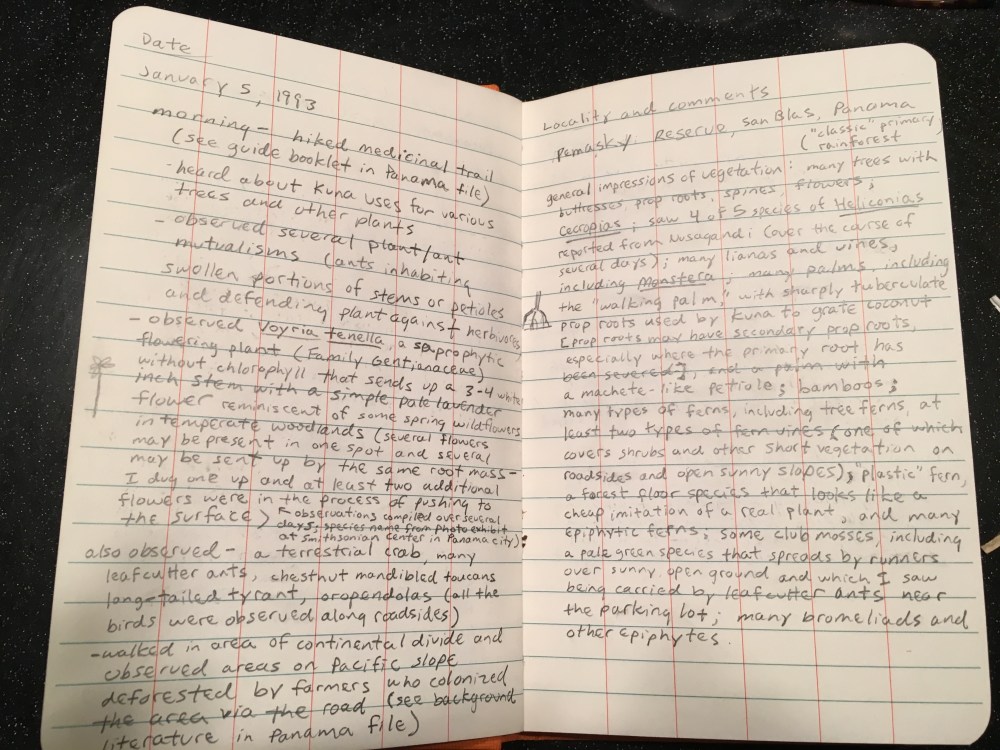 Date
January 5, 1993
morning - hiked medicinal trail
(see guide booklet in Panama file)
- heard about Kuna uses for various
trees and other plants
- observed several plant/ant
mutualisms (ants inhabiting
swollen portions of stems or petioles
and defending plant against herbivores)
- observed Voyria tenella, a saprophytic
flowering plant (Family Gentianaceae)
without chlorophyll that sends up a 3-4
inch stem with a simple pale lavender white
flower reminiscent of some spring wildflowers
in temperate woodlands (several flowers
may be present in one spot and several
may be sent up by the same root mass -
I dug one up and at least two additional
flowers were in the process of pushing to
the surface) ← observations compiled over several
days; species name from photo exhibit
at Smithsonian Center in Panama City);
also observed - a terrestrial crab, many
leafcutter ants, chestnut mandibled toucans
long-tailed tyrant, oropendolas (all the
birds were observed along roadsides)
- walked in area of continental divide and
observed areas on Pacific slope
deforested by farmers who colonized
the area via the road (see background
literature in Panama file)
Locality and comments
Pemasky Reserve, San Blas, Panama
("classic" primary
rainforest
general impressions of vegetation: many trees with
buttresses prop roots, spines, flowers;
Cecropias; saw 4 of 5 species of Heliconias
reported from Nusagandi (over the course of
several days); many lianas and vines,
including Monstera; many palms, including
the "walking palm," with sharply tuberculate
prop roots used by Kuna to grate coconut
[prop roots may have secondary prop roots,
especially where the primary root has
been severed], and a palm with
a machete-like petiole; bamboos;
many types of ferns, including tree ferns, at
least two types of fern vines (one of which
covers shrubs and other short vegetation on
roadsides and open sunny slopes), "plastic" fern,
a forest floor species that looks like a
cheap imitation of a real plant, and many
epiphytic ferns; some club mosses, including
a pale green species that spreads by runners
over sunny, open ground and which I saw
being carried by leafcutter ants near
the parking lot; many bromeliads and
other epiphytes.